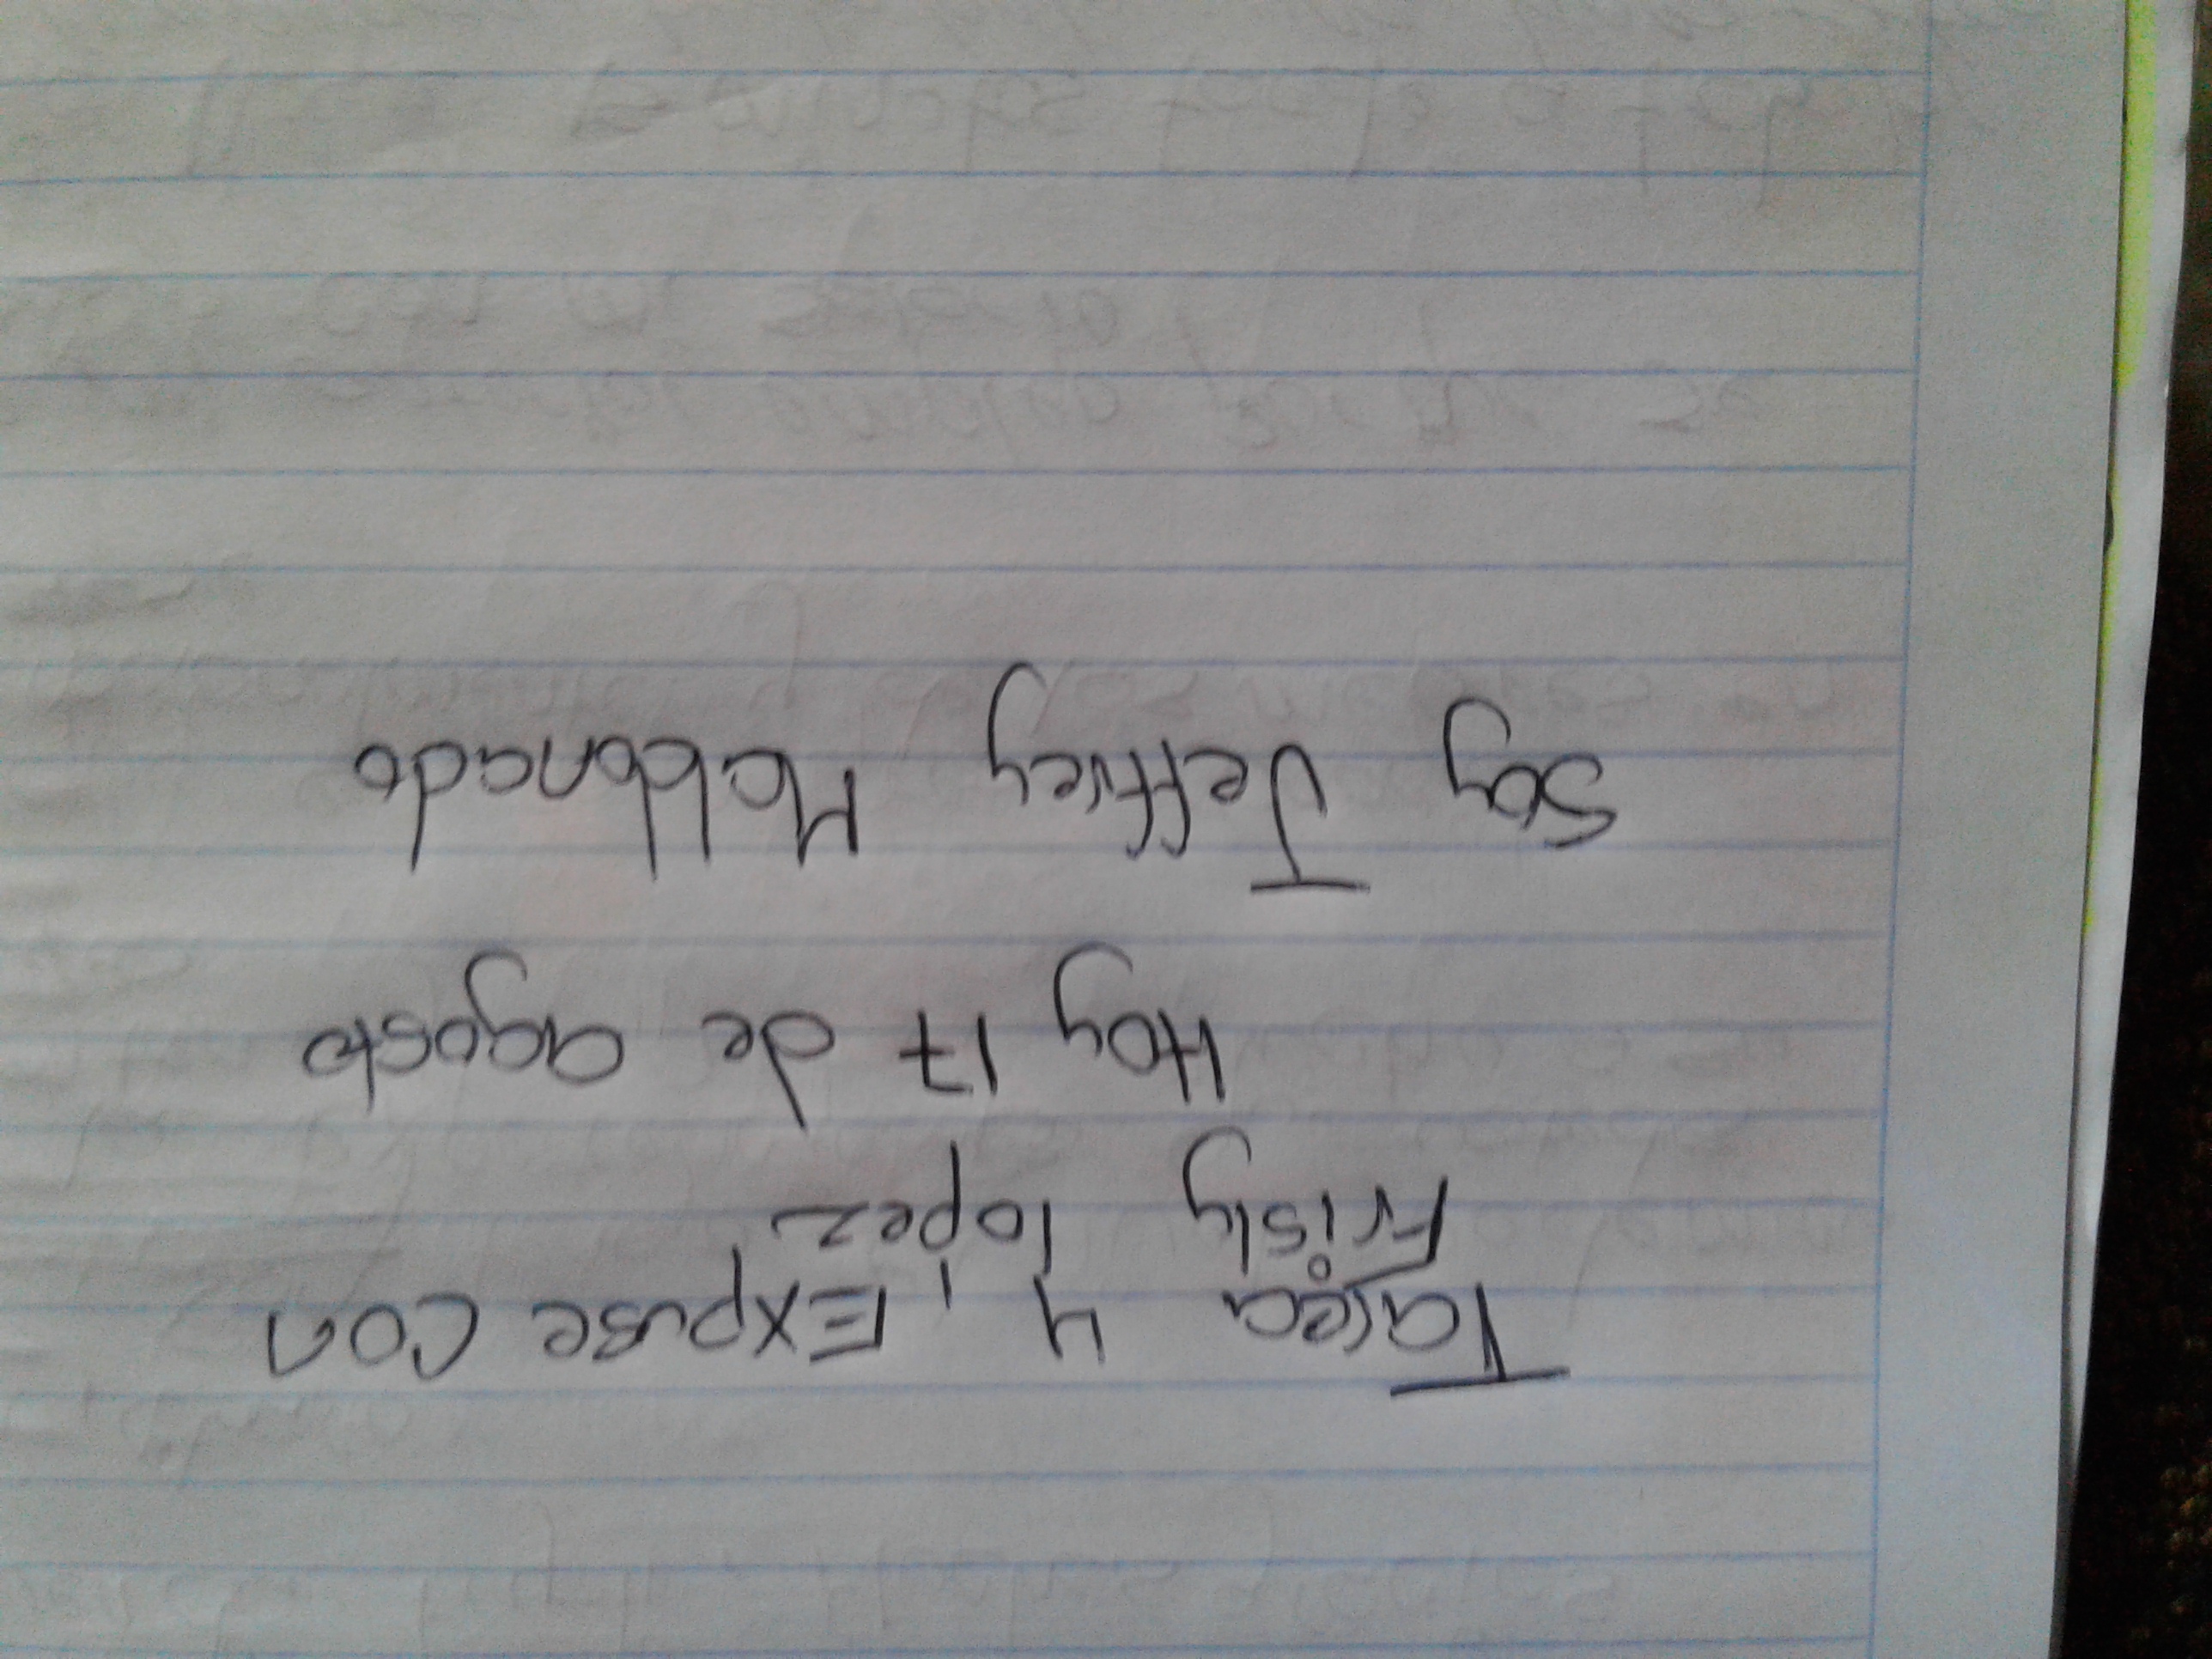 Tarea 4, Expuse con
Frisly lopez
Hoy 17 de agosto
Soy Jeffrey Maldonado